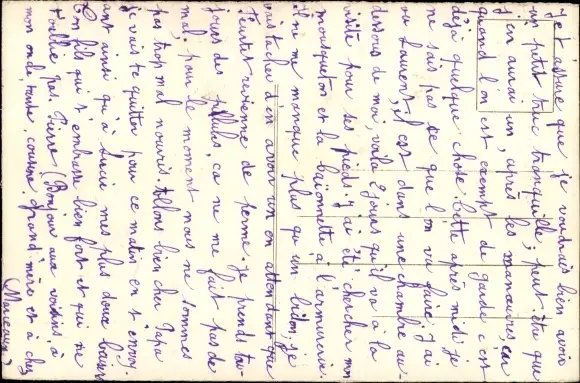 Je t'assure que je voudrais bien avoir
un petit truc tranquille, peut être que
j'en aurai un, après les manœuvres, car
quand l'on est exempt de garde c'est
déjà quelque chose. Cette après midi je
ne sais pas ce que l'on va faire. J'ai
vu Laurent, il est dans une chambre au-
dessous de moi, voilà 2 jours qu'il va à la
visite pour ses pieds. J'ai été chercher mon
mousqueton et la baïonnette à l'armurerie.
il ne me manque plus qu'un bidon, je
vais tâcher d'en avoir un en attendant que
revienne de perme. Je prends tou-
jours des pillules, ça ne me fait pas de
mal, pour le moment nous ne sommes
pas trop mal nourris. Allons bien cher Papa
je vais te quitter pour ce matin en t'envoy-
ant ainsi qu'à Lucie mes plus doux baisers
Ton fils qui t'embrasse bien fort et qui ne
t'oublie pas. Pierre (Bonjour aux voisins, à
mon oncle, tante, cousine, grand'mère et à chez
Marceau)